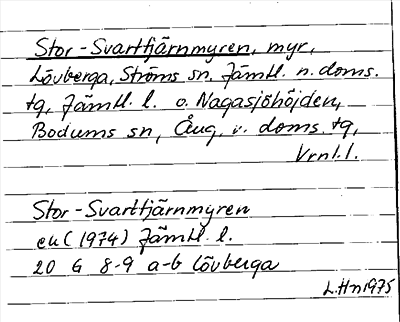 Stor-Svarttjärnmyren, myr,
Lövberga, Ströms sn, Jämtl. n. doms.
tg, Jämtl. l. o. Nagasjöhöjden,
Bodums sn, Ång. v. doms. tg,
Vrnl. l.
Stor-Svarttjärnmyren
ek (1974) Jämtl. l.
20 G 8-9 a-b Lövberga
L.Hn 1975